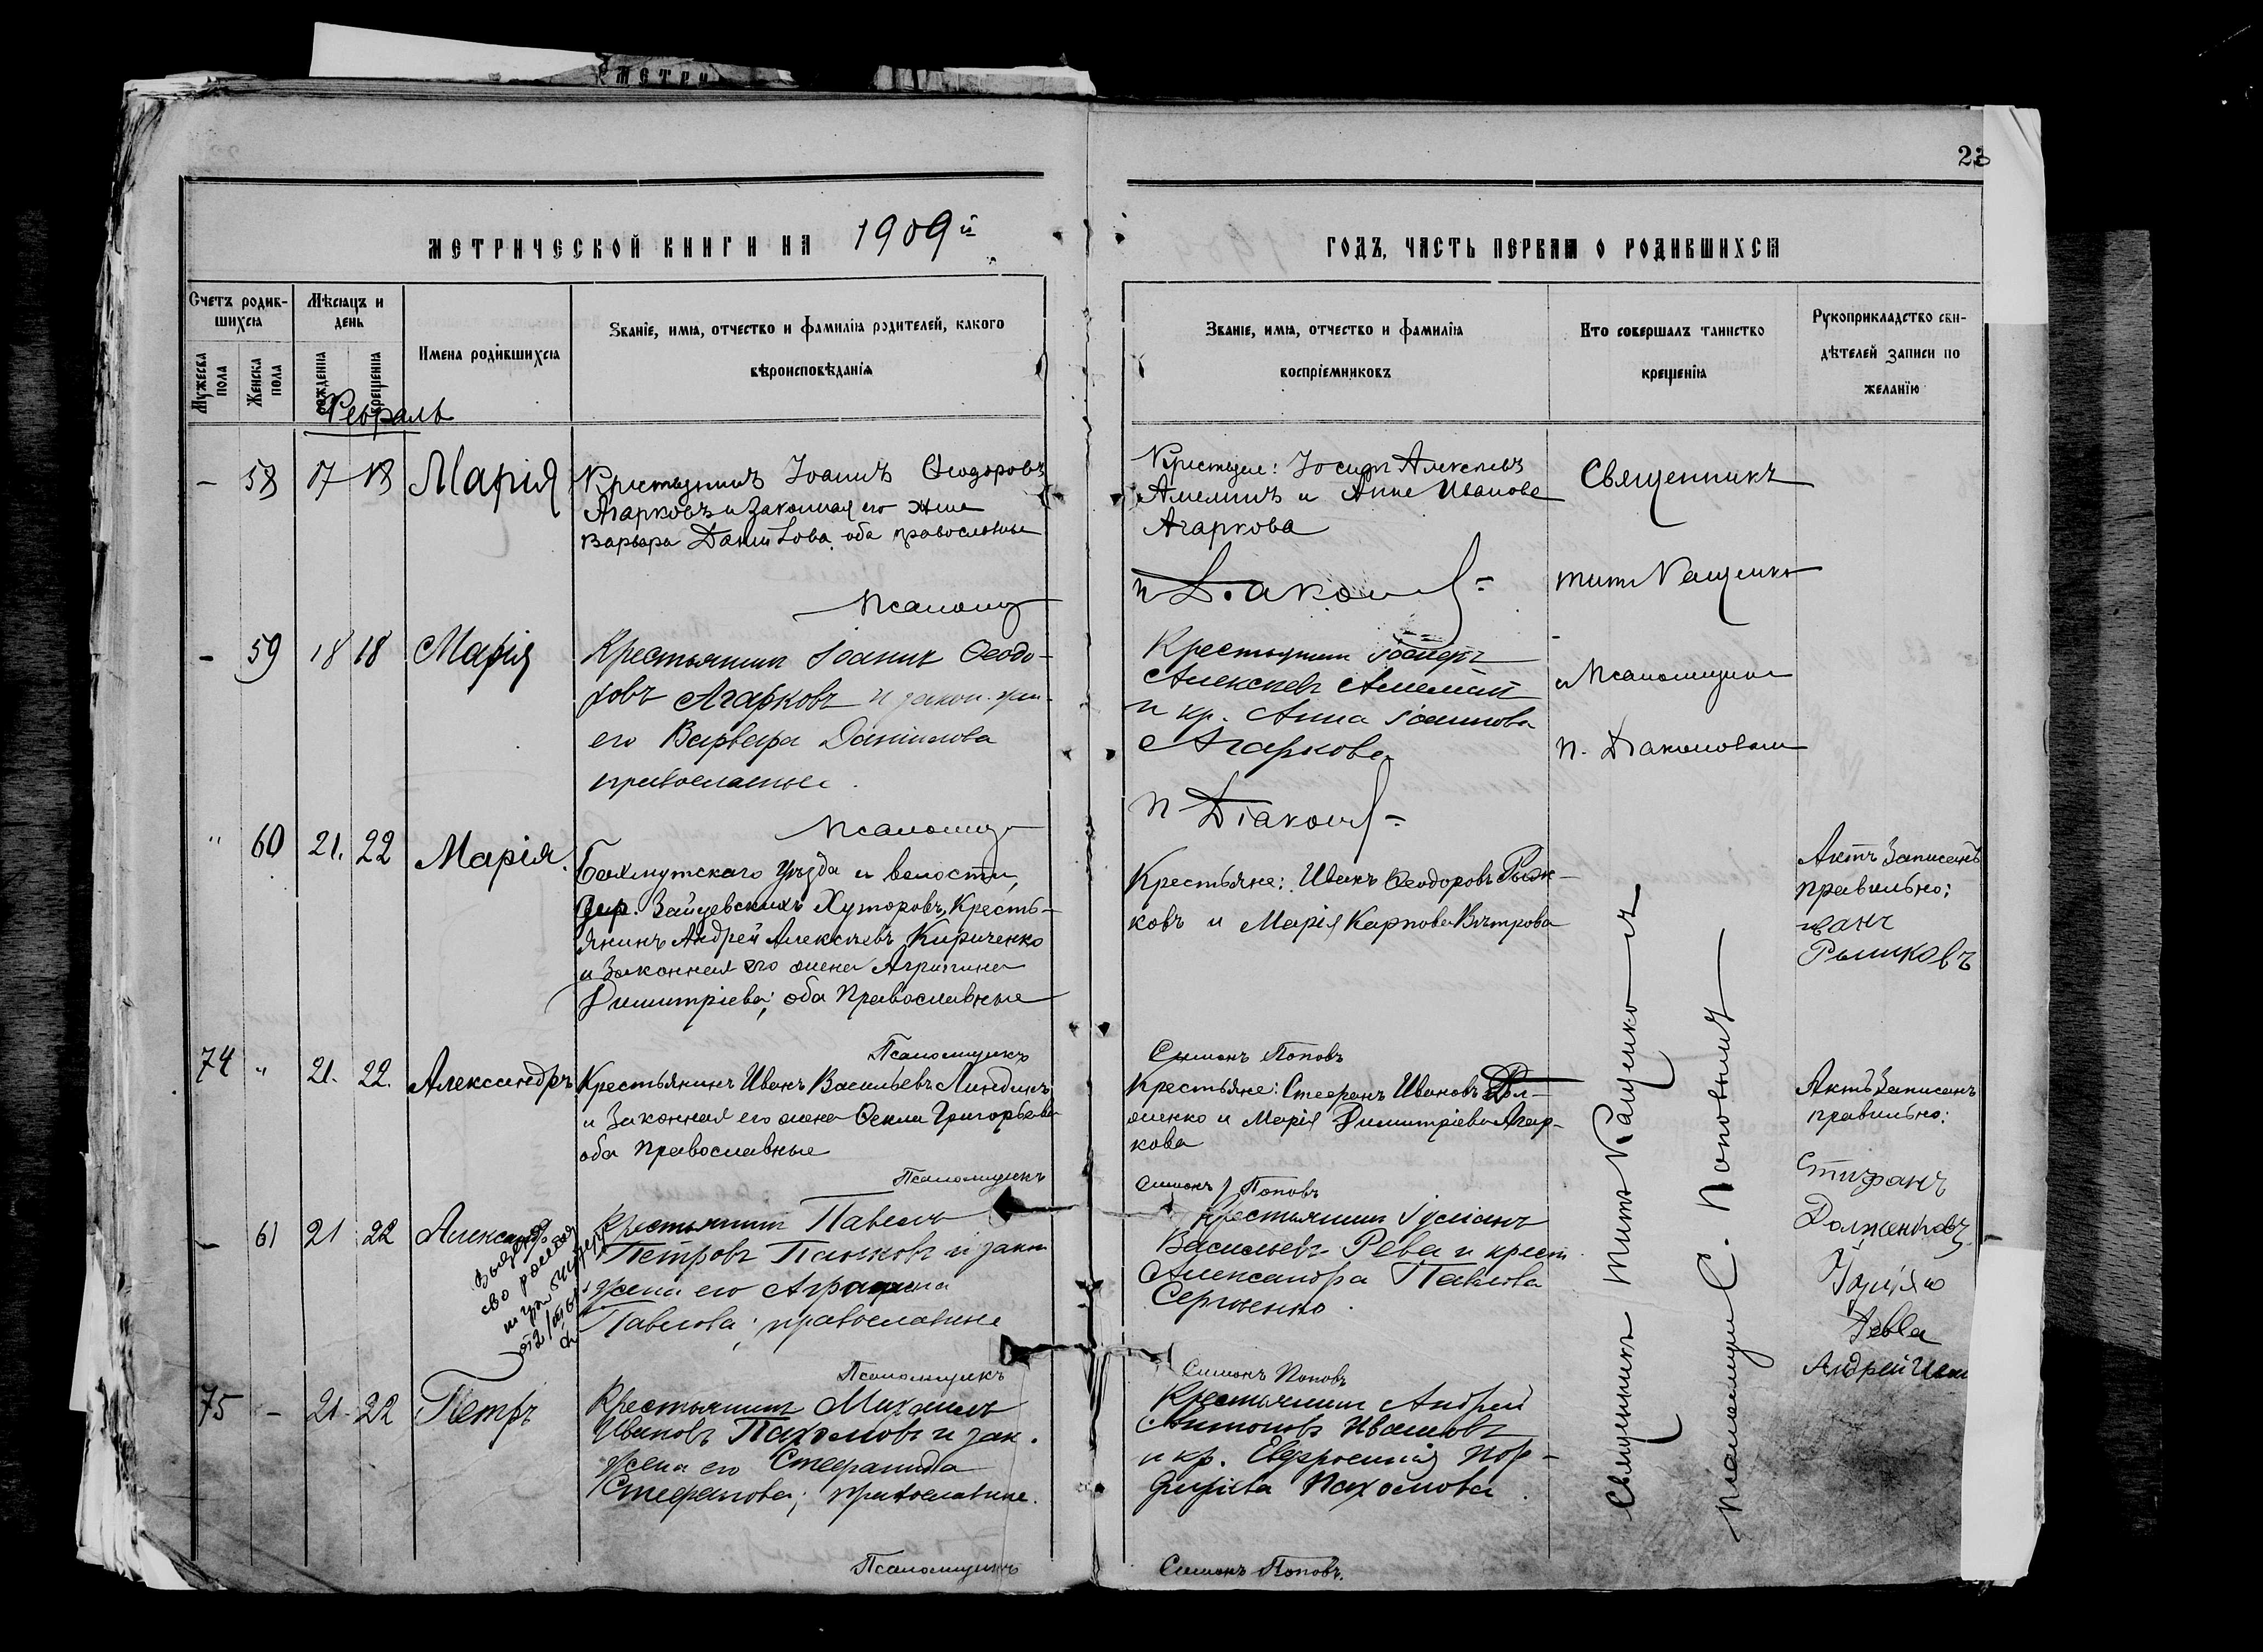 МЕТРИ
23
МЕТРИЧЕСКОЙ КНИГИ НА 1909й
ГОДЪ, ЧАСТЬ ПЕРВАЯ О РОДИВШИХСЯ
Счетъ родив-
шихся
Мужеска пола
Женска пола
Мѣсяцъ и
день
рожденія
крещенія
Имена родившихся
Званіе, имя, отчество и фамилія родителей, какого
вѣроисповѣданія
Званіе, имя, отчество и фамилія
воспріемниковъ
Кто совершалъ таинство
крещенія
Рукоприкладство сви-
дѣтелей записи по
желанію
Февраль
- 58 17 18 Марія
Крестьянинъ Іоаннъ Ѳеодоровъ
Агарковъ и законная его жена
Варвара Даніилова оба православные
Псаломщ
Крестьяне: Іосифъ Алексѣевъ
Амелинъ и Анна Иванова
Агаркова
п Діаконовъ
Священникъ
Титъ Кащенко
- 59 18 18 Марія
Крестьянинъ Іоаннъ Ѳеодо-
ровъ Агарковъ и закон. жен.
его Варвара Даніилова
православные.
Псаломщ
Крестьянинъ Іосифъ
Алексѣевъ Амелинъ
и кр. Анна Іоаннова
Агаркова
п Діаконовъ
и Псаломщикъ
п. Діаконовъ
" 60 21. 22 Марія.
Бахмутскаго уѣзда и волости,
дер. Зайцевскихъ Хуторовъ, Кресть-
янинъ Андрей Алексѣевъ Кириченко
и Законная его жена Агрипина
Димитріева; оба Православные
Псаломщикъ
Крестьяне: Иванъ Ѳеодоровъ Рыж-
ковъ и Марія Карпова Вѣтрова
Симонъ Поповъ
Актъ Записанъ
правильно:
иванъ
Рышковъ
74 " 21. 22. Александръ
Крестьянинъ Иванъ Васильевъ Линдинъ
и Законная его жена Ѳекла Григорьева
оба Православные
Псаломщикъ
Крестьяне: Стефанъ Ивановъ Дол-
женко и Марія Димитріева Агар-
кова
Симонъ Поповъ
Актъ Записанъ
правильно:
Стифанъ
Долженковъ
- 61 21 22 Александра
Крестьянинъ Павелъ
Петровъ Панковъ и закон
жена его Агрипина
Павлова; православные
Псаломщикъ
Крестьянинъ Іуліанъ
Васильевъ Рева и крест.
Александра Павлова
Сергіенко.
Симонъ Поповъ
Рева
Андрей Иваш
75 - 21 22 Петръ
Крестьянинъ Михаилъ
Ивановъ Пахомовъ и зак.
жена его Стефанида
Стефанова; православные.
Псаломщикъ
Крестьянинъ Андрей
Антоновъ Ивашовъ
и кр. Евфросинія Пор-
фирьева Пахомова.
Симонъ Поповъ.
Священникъ Титъ Кащенко
Псаломщикъ С. Поповъ